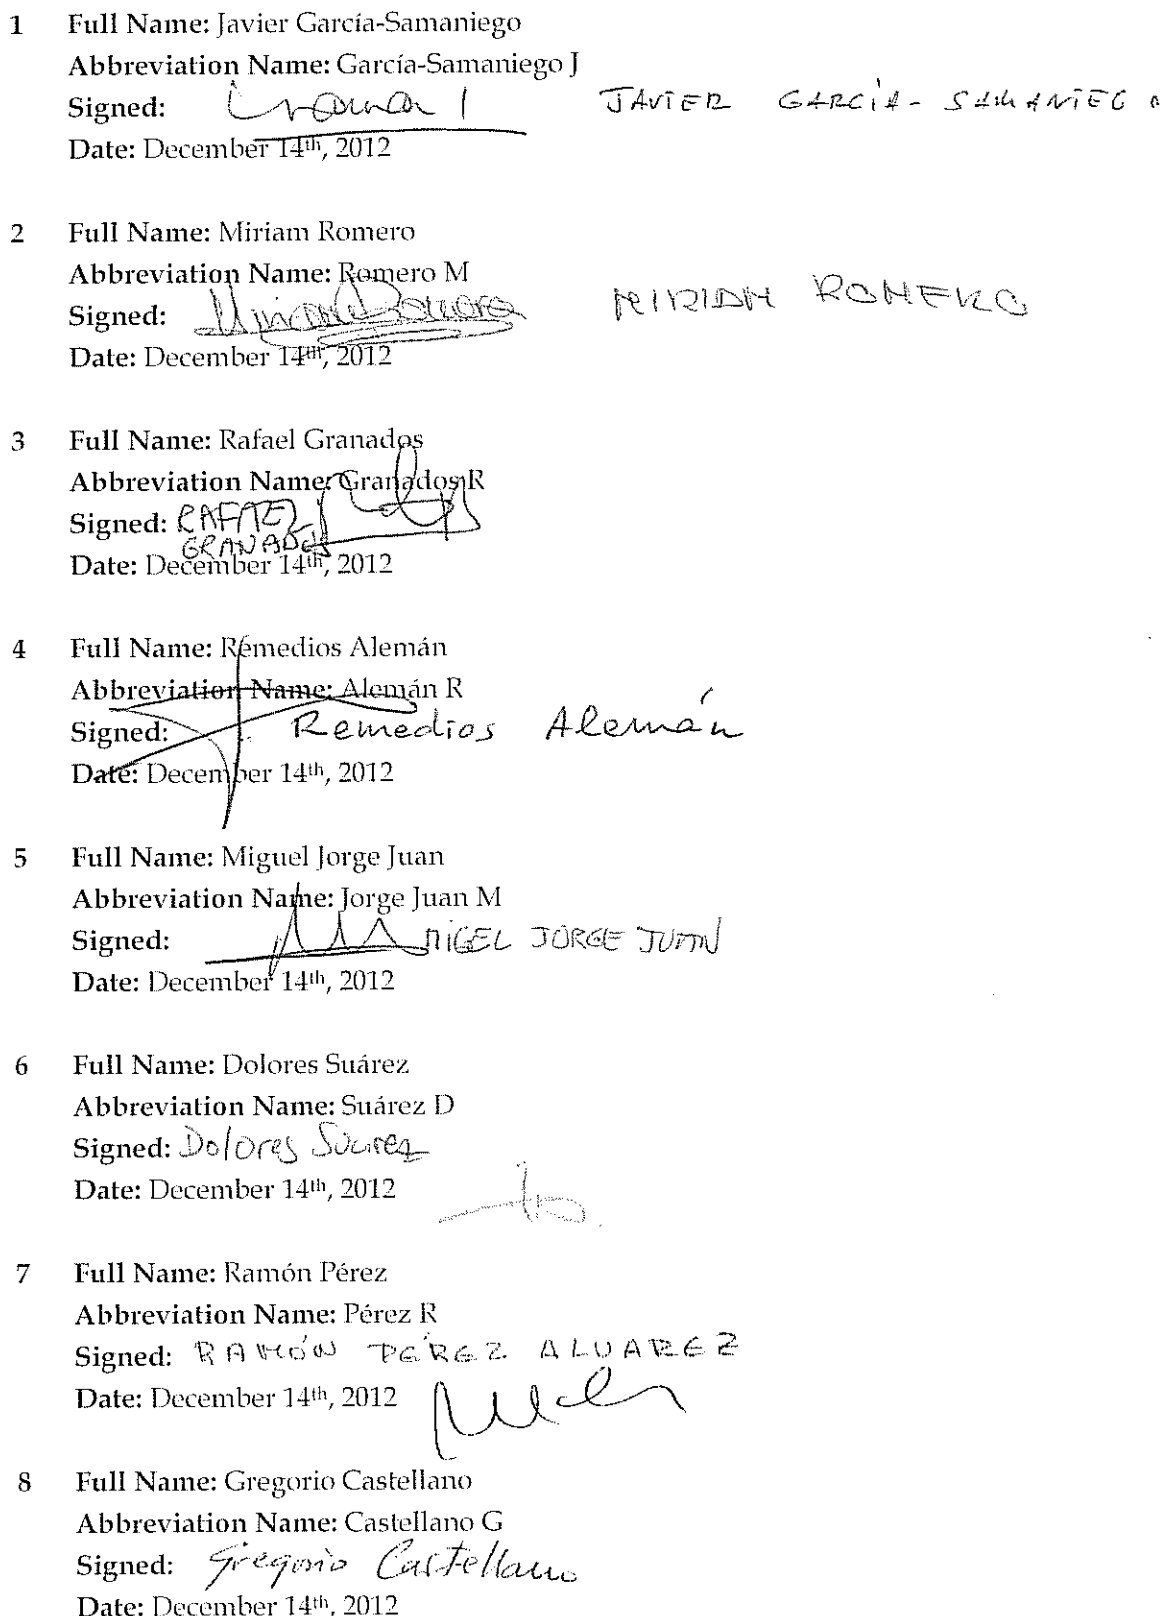 1 Full Name: Javier García-Samaniego
Abbreviation Name: García-Samaniego J
Signed: JAVIER GARCÍA-SAMANIEGO
Date: December 14th, 2012
2 Full Name: Miriam Romero
Abbreviation Name: Romero M
Signed: Miriam Romero MIRIAM ROMERO
Date: December 14th, 2012
3 Full Name: Rafael Granados
Abbreviation Name: Granados R
Signed: RAFAEL
GRANADOS
Date: December 14th, 2012
4 Full Name: Remedios Alemán
Abbreviation Name: Alemán R
Signed: Remedios Alemán
Date: December 14th, 2012
5 Full Name: Miguel Jorge Juan
Abbreviation Name: Jorge Juan M
Signed: MIGEL JORGE JUAN
Date: December 14th, 2012
6 Full Name: Dolores Suárez
Abbreviation Name: Suárez D
Signed: Dolores Suarez
Date: December 14th, 2012
7 Full Name: Ramón Pérez
Abbreviation Name: Pérez R
Signed: RAMÓN PÉREZ ALVAREZ
Date: December 14th, 2012
8 Full Name: Gregorio Castellano
Abbreviation Name: Castellano G
Signed: Gregorio Castellano
Date: December 14th, 2012